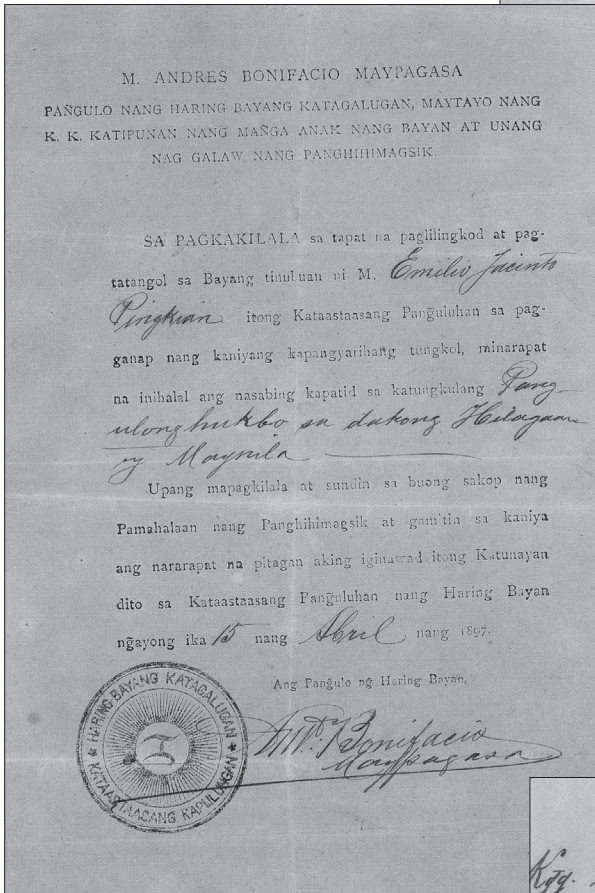 M. ANDRES BONIFACIO MAYPAGASA
PAÑGULO NANG HARING BAYANG KATAGALUGAN, MAYTAYO NANG
K. K. KATIPUNAN NANG MAÑGA ANAK NANG BAYAN AT UNANG
NAG GALAW NANG PANGHIHIMAGSIK.
SA PAGKAKILALA sa tapat na paglilingkod at pag-
tatangol sa Bayang tinuluan ni M. Emilio Jacinto
Pingkian itong Kataastaasang Pañguluhan sa pag-
ganap nang kaniyang kapangyarihang tungkol, minarapat
na inihalal ang nasabing kapatid sa katungkulang Pang-
ulong hukbo sa dakong Hilagaan
ng Maynila
Upang mapagkilala at sundin sa buong sakop nang
Pamahalaan nang Panghihimagsik at gamitin sa kaniya
ang nararapat na pitagan aking iginawad itong Katunayan
dito sa Kataastaasang Pañguluhan nang Haring Bayan
ngayong ika 15 nang Abril nang 1897.
Ang Pañgulo ng̃ Haring Bayan,
And. Bonifacio
Maypagasa
HARING-BAYANG KATAGALUGAN
KATAASTAASANG KAPULUNGAN
Kgg.